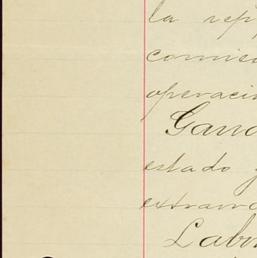 la rep
comisi
operacio
Gana
estado y
extravia
Labo